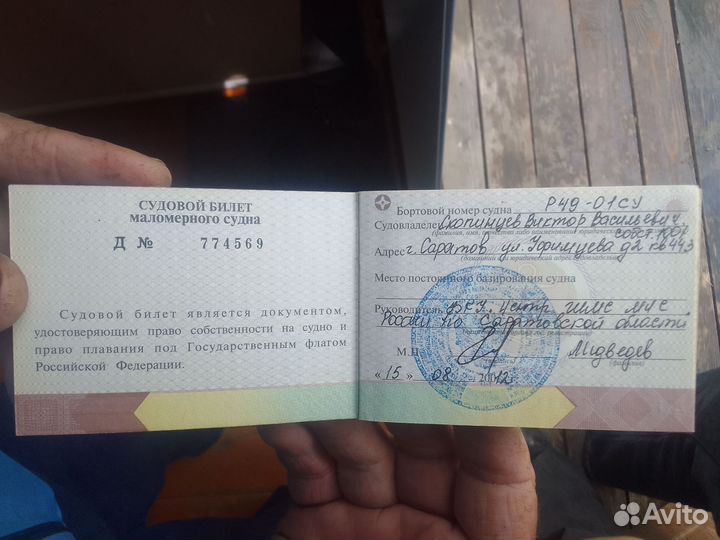 СУДОВОЙ БИЛЕТ
маломерного судна
Д № 774569
Судовой билет является документом,
удостоверяющим право собственности на судно и
право плавания под Государственным флагом
Российской Федерации.
Бортовой номер судна Р49-01СУ
Судовладелец Скопинцев Виктор Васильевич
(фамилия, имя, отчество либо наименование юридического
собст. 100%
Адрес г. Саратов ул. д2 кв 443
Место постоянного базирования судна
Руководитель ФКУ "Центр ГИМС МЧС
России по Саратовской области
М.П. Медведев
(фамилия)
"15" 08 2012
Avito